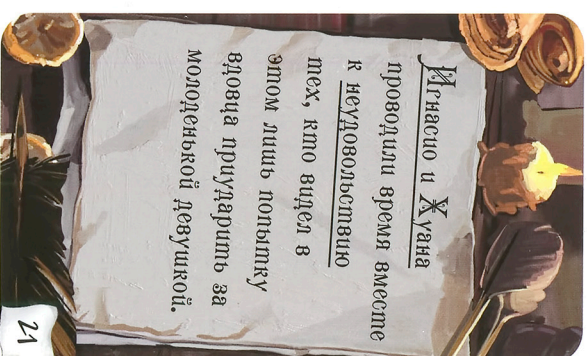 Игнасио и Жуана
проводили время вместе
к неудовольствию
тех, кто видел в
этом лишь попытку
вдовца приударить за
молоденькой девушкой.
21